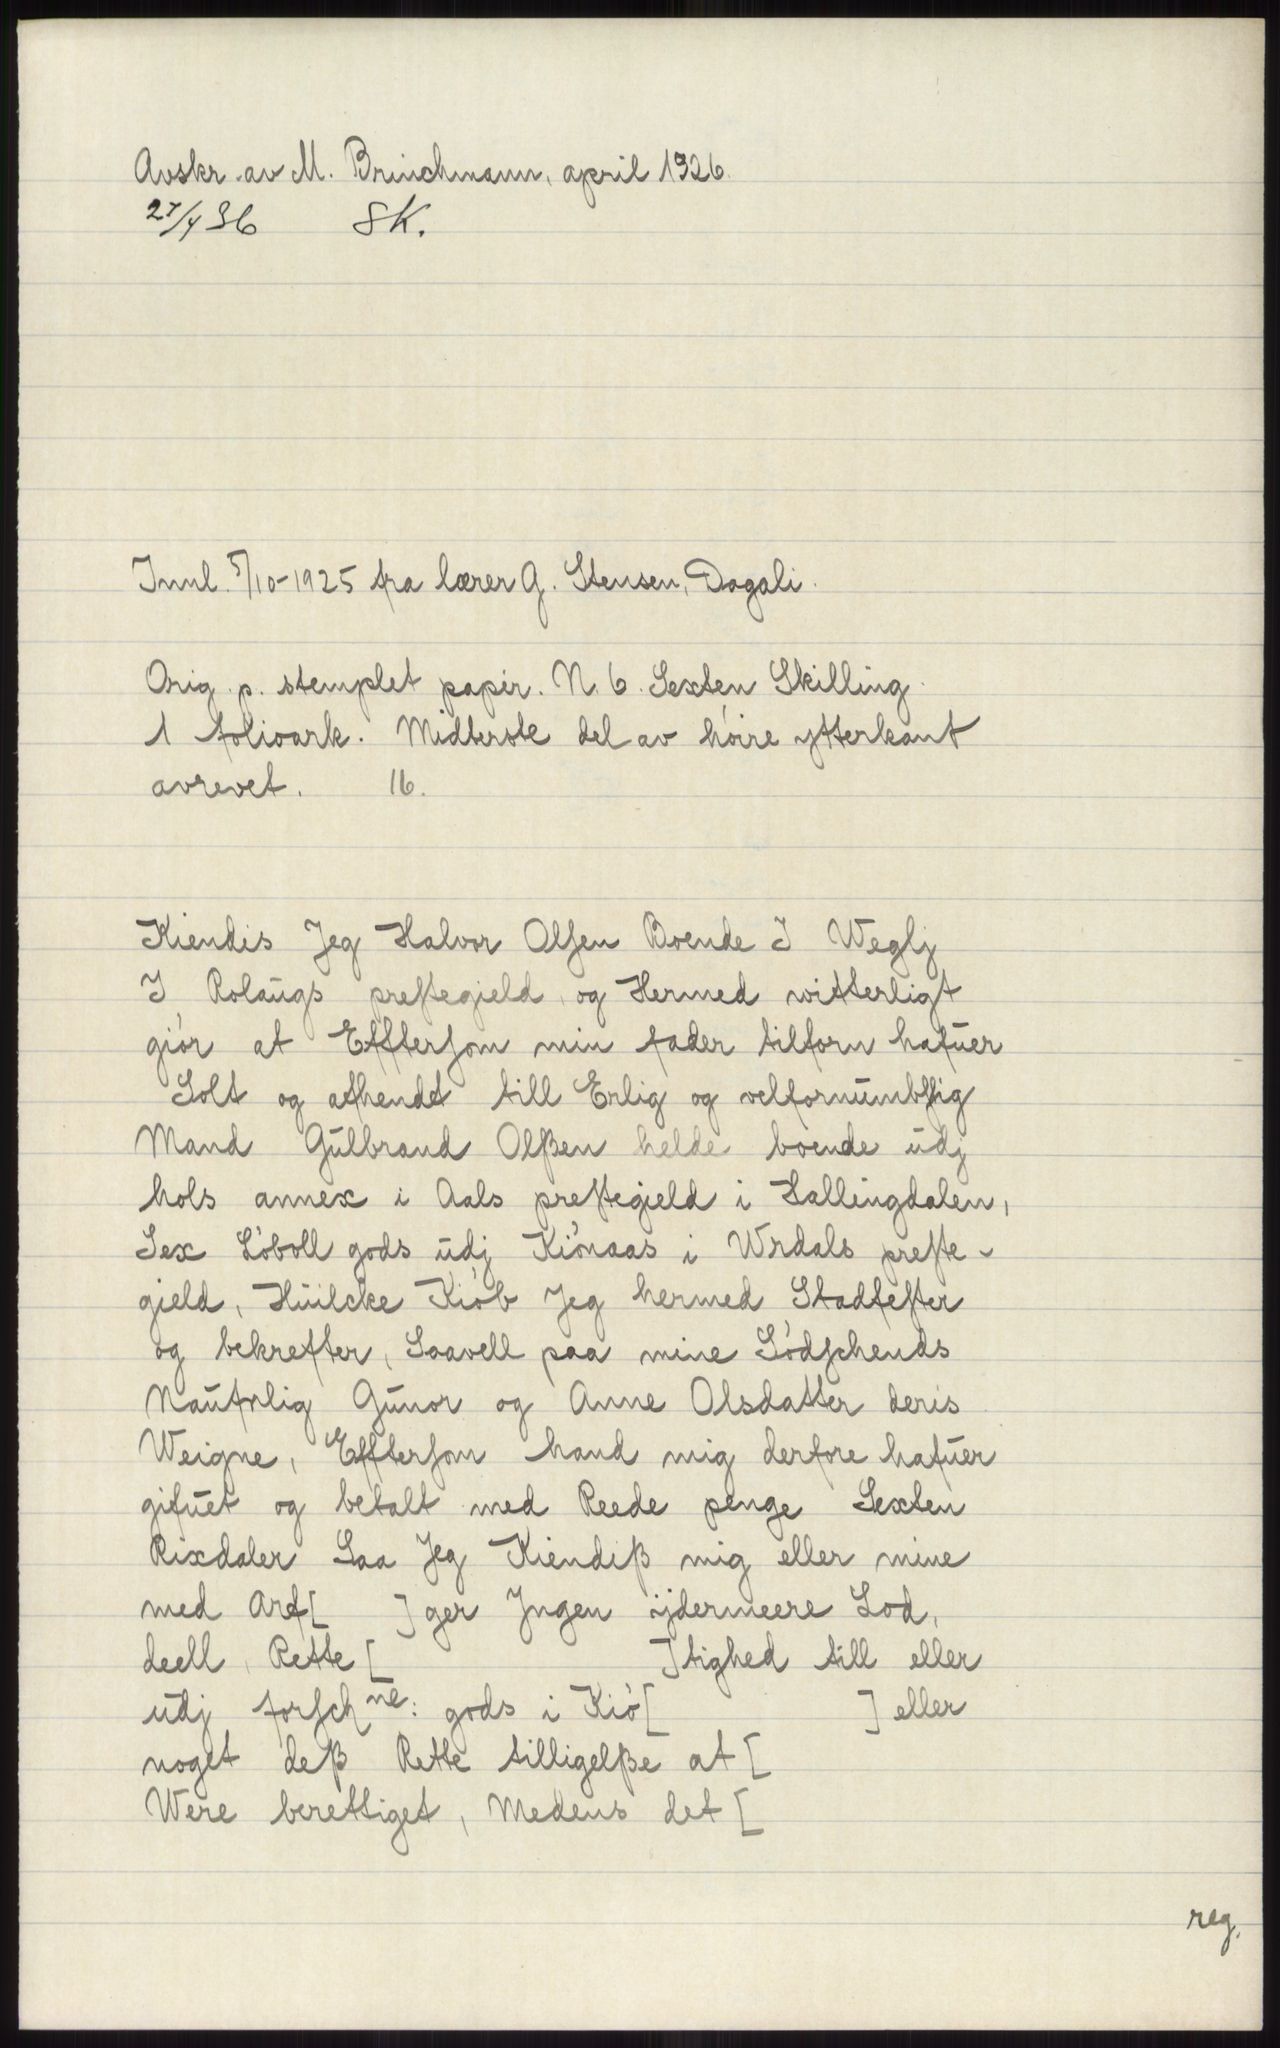 Avskr. av M. Brinchmann, april 1926.
27/4 36 SK.
Innl. 5/10-1925 fra lærer G. Stensen, Dagali.
Orig. p. stemplet papir. N. 6. Sexten Skilling.
1 folioark. Midterste del av høire ytterkant
avrevet. 16.
Kiendis Jeg Halvor Olsen Boende I Weglj
I Rolaugs prestegield, og Hermed witterligt
giør at Efftersom min fader tilforn hafuer
Solt og afhendt till Erlig og velfornumbstig
Mand Gulbrand Olßen helde boende udj
hols annex i Aals prestegield i Hallingdalen,
Sex Løboll gods udj Kiønaas i Wrdals preste-
gield, Huilcke Kiøb Jeg hermed Stadfester
og bekrefter, Saavell paa mine Sødschends
Naufnlig Gunor og Anne Olsdatter deris
Weigne, Efftersom hand mig derfore hafuer
gifuet og betalt med Reede penge Sexten
Rixdaler Saa Jeg Kiendiß mig eller mine
med Arf[ ]ger Jngen ijdermeere Lod,
deell, Rette [ ]tighed till eller
udj forsch ne: gods i Kiø[ ] eller
noget deß Rette tilligelße at [
Were berettiget, Medens det [
reg.